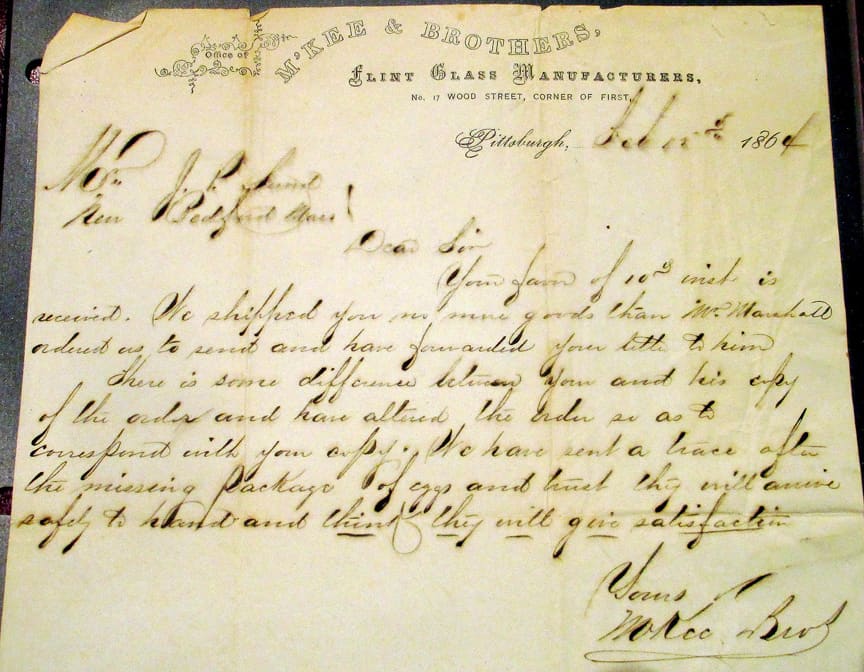 Office of
M'KEE & BROTHERS,
FLINT GLASS MANUFACTURERS,
No. 17 WOOD STREET, CORNER OF FIRST,
Pittsburgh, Feb 1864
J. P.
New Bedford Mass
Dear Sir
Your favor of 10th inst is
received. We shipped you no more goods than Mr. Marshall
ordered us to send and have forwarded your letter to him
There is some difference between your and his copy
of the order and have altered the order so as to
correspond with your copy. We have sent a trace after
the missing package of eggs and trust they will arrive
safely to hand and think they will give satisfaction
Yours
McKee & Bros